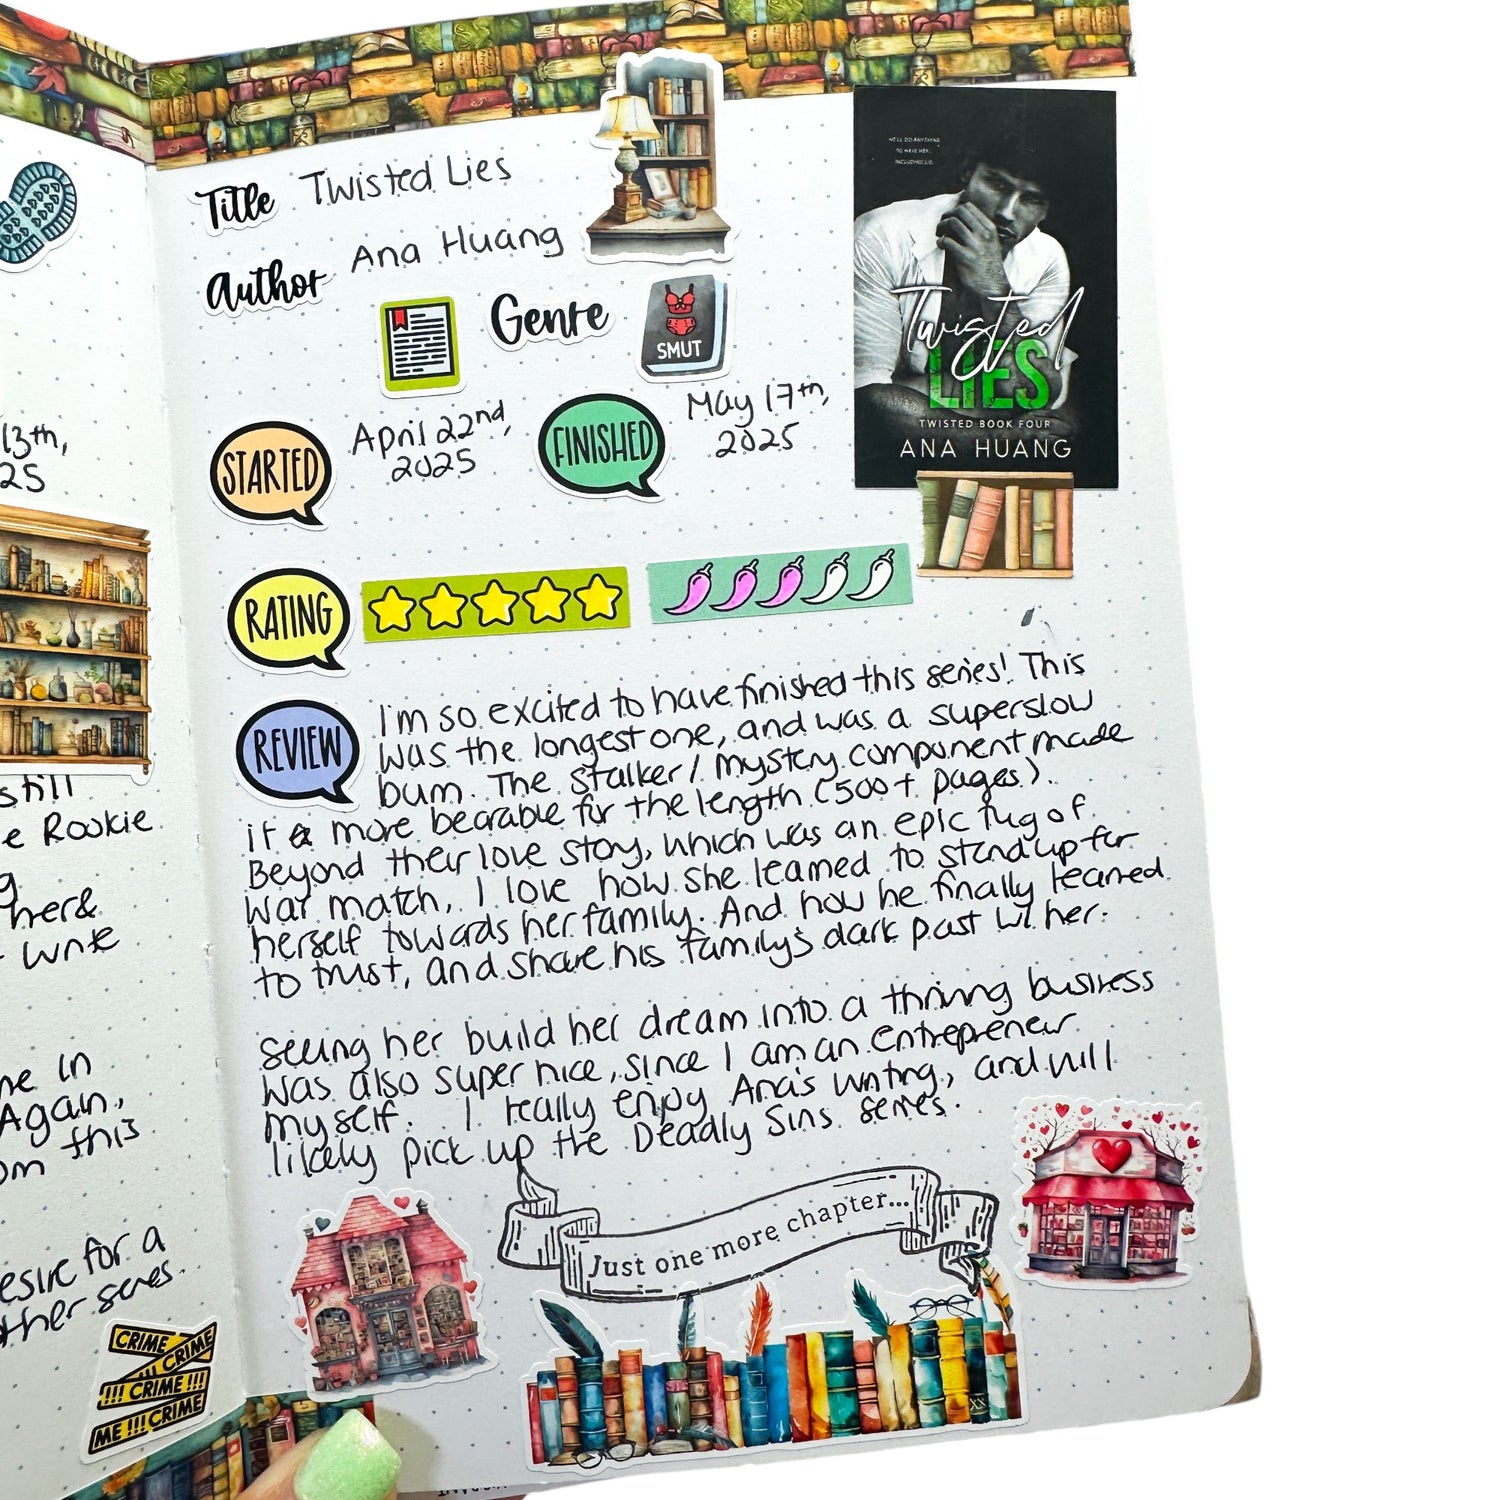 Title Twisted Lies
Author Ana Huang
Genre
SMUT
STARTED April 22nd,
2025
FINISHED May 17th,
2025
HE'LL DO ANYTHING
TO HAVE HER...
INCLUDING LIE.
Twisted
LIES
TWISTED BOOK FOUR
ANA HUANG
RATING
REVIEW
I'm so excited to have finished this series! This
was the longest one, and was a superslow
burn. The stalker/mystery component made
it more bearable for the length (500+ pages).
Beyond their love story, which was an epic tug of
war match, I love how she learned to stand up for
herself towards her family. And how he finally learned
to trust, and share his family's dark past w/ her.
Seeing her build her dream into a thriving business
was also super nice, since I am an entrepreneur
myself. I really enjoy Ana's writing, and will
likely pick up the Deadly Sins series.
Just one more chapter...
13th,
25
still
e Rookie
g
her &
write
me in
Again,
om this
esire for a
ther series.
CRIME
!!! CRIME
!!! CRIME !!!
ME !!! CRIME